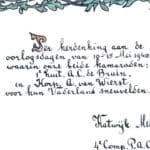 Ter herdenking aan de
oorlogsdagen van 10-15 Mei 1940
waarin onze beide kameraden:
1e luit. A.L. de Bruin,
en Korp. A. van Wierst,
voor hun Vaderland sneuvelden.
Katwijk Me
4e Comp. P.A.